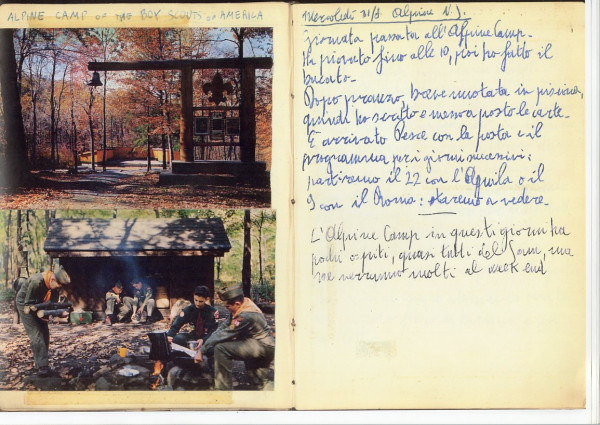 ALPINE CAMP OF THE BOY SCOUTS OF AMERICA
Mercoledì 31/8 Alpine N.J.
Giornata passata all'Alpine Camp.
Ha piovuto fino alle 10, poi ho fatto il
bucato.
Dopo pranzo, breve nuotata in piscina,
quindi ho scritto e messo a posto le carte.
È arrivato Pesce con la posta e il
programma per i giorni successivi:
partiremo il 22 con l'Aquila o il
9 con il Roma: staremo a vedere.
L'Alpine Camp in questi giorni ha
pochi ospiti, quasi tutti del Jam, ma
ne verranno molti al week end